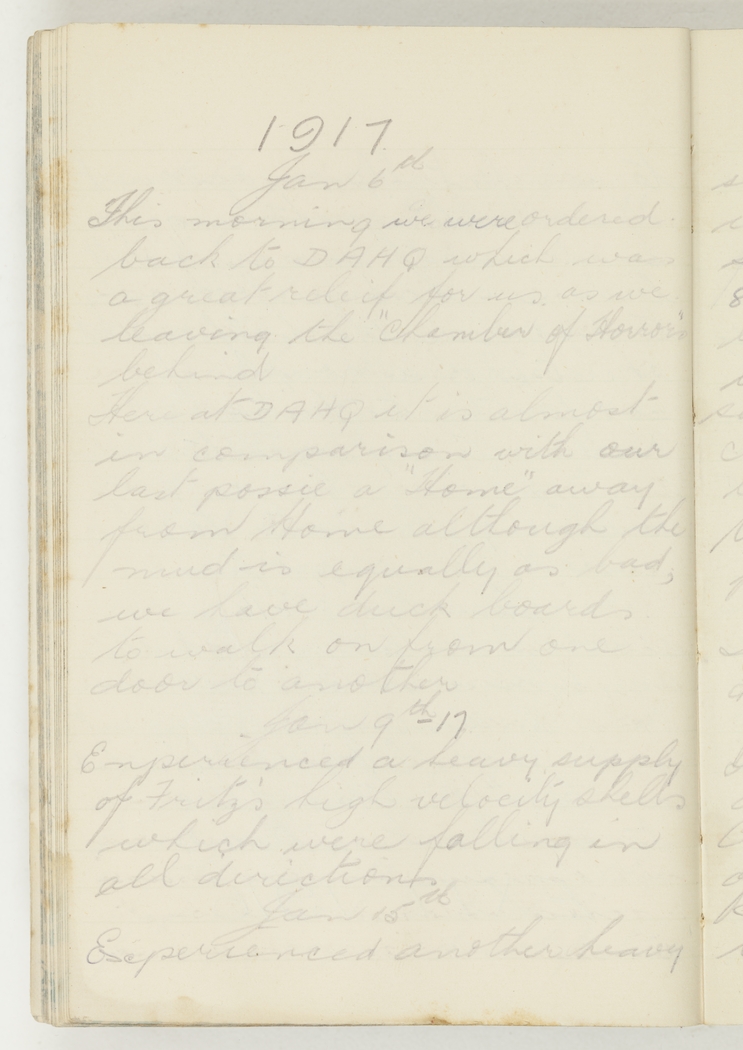 1917
Jan 6th
This morning we were ordered
back to DAHQ which was
a great relief for us as we
leaving the "Chamber of Horrors"
behind
Here at DAHQ it is almost
in comparison with our
last possie a "Home" away
from Home although the
mud is equally as bad,
we have duck boards
to walk on from one
door to another
Jan 9th-17
Experienced a heavy supply
of Fritz's high velocity shells
which were falling in
all directions
Jan 15th
Experienced another heavy